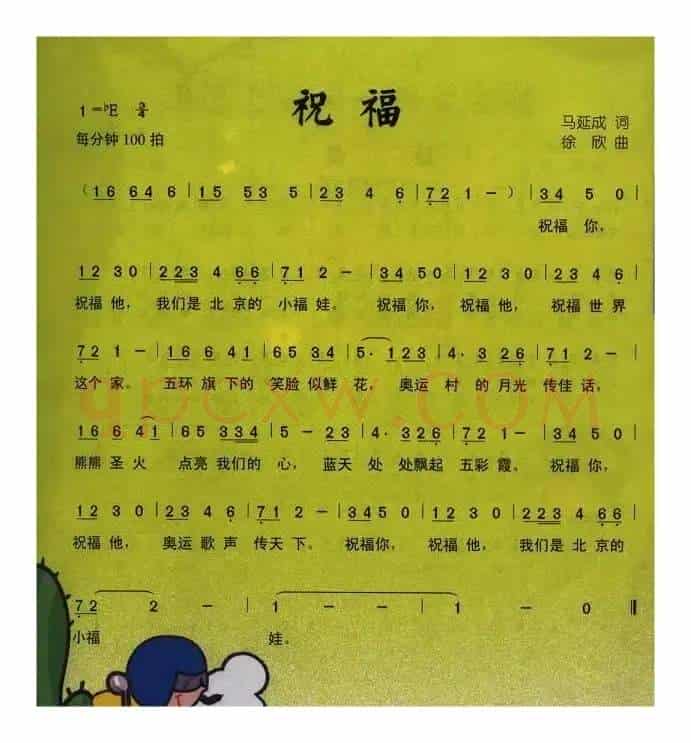 祝福
1=♭E
每分钟100拍
马延成 词
徐欣 曲
( 16 64 6 | 15 53 5 | 23 4 6 | 72 1 – ) | 34 5 0 |
祝福 你,
12 3 0 | 223 4 66 | 71 2 – | 34 5 0 | 12 3 0 | 23 4 6 |
祝福 他, 我们是 北 京的 小福 娃。 祝福 你, 祝福 他, 祝福 世 界
72 1 – | 16 6 41 | 65 3 4 | 5· 123 | 4· 326 | 71 2 – |
这个 家。 五环 旗 下的 笑脸 似鲜 花, 奥运 村 的月光 传佳 话,
16 6 41 | 65 334 | 5 – 23 | 4· 326 | 72 1 – | 34 5 0 |
熊熊 圣 火 点亮 我们的 心, 蓝天 处 处飘起 五彩 霞。 祝福 你,
12 3 0 | 23 4 6 | 71 2 – | 34 5 0 | 12 3 0 | 223 4 66 |
祝福 他, 奥运 歌 声 传天 下。 祝福 你, 祝福 他, 我们是 北 京的
72 2 – | 1 – – | 1 – 0 ‖
小福 娃。
qpcxw.COM